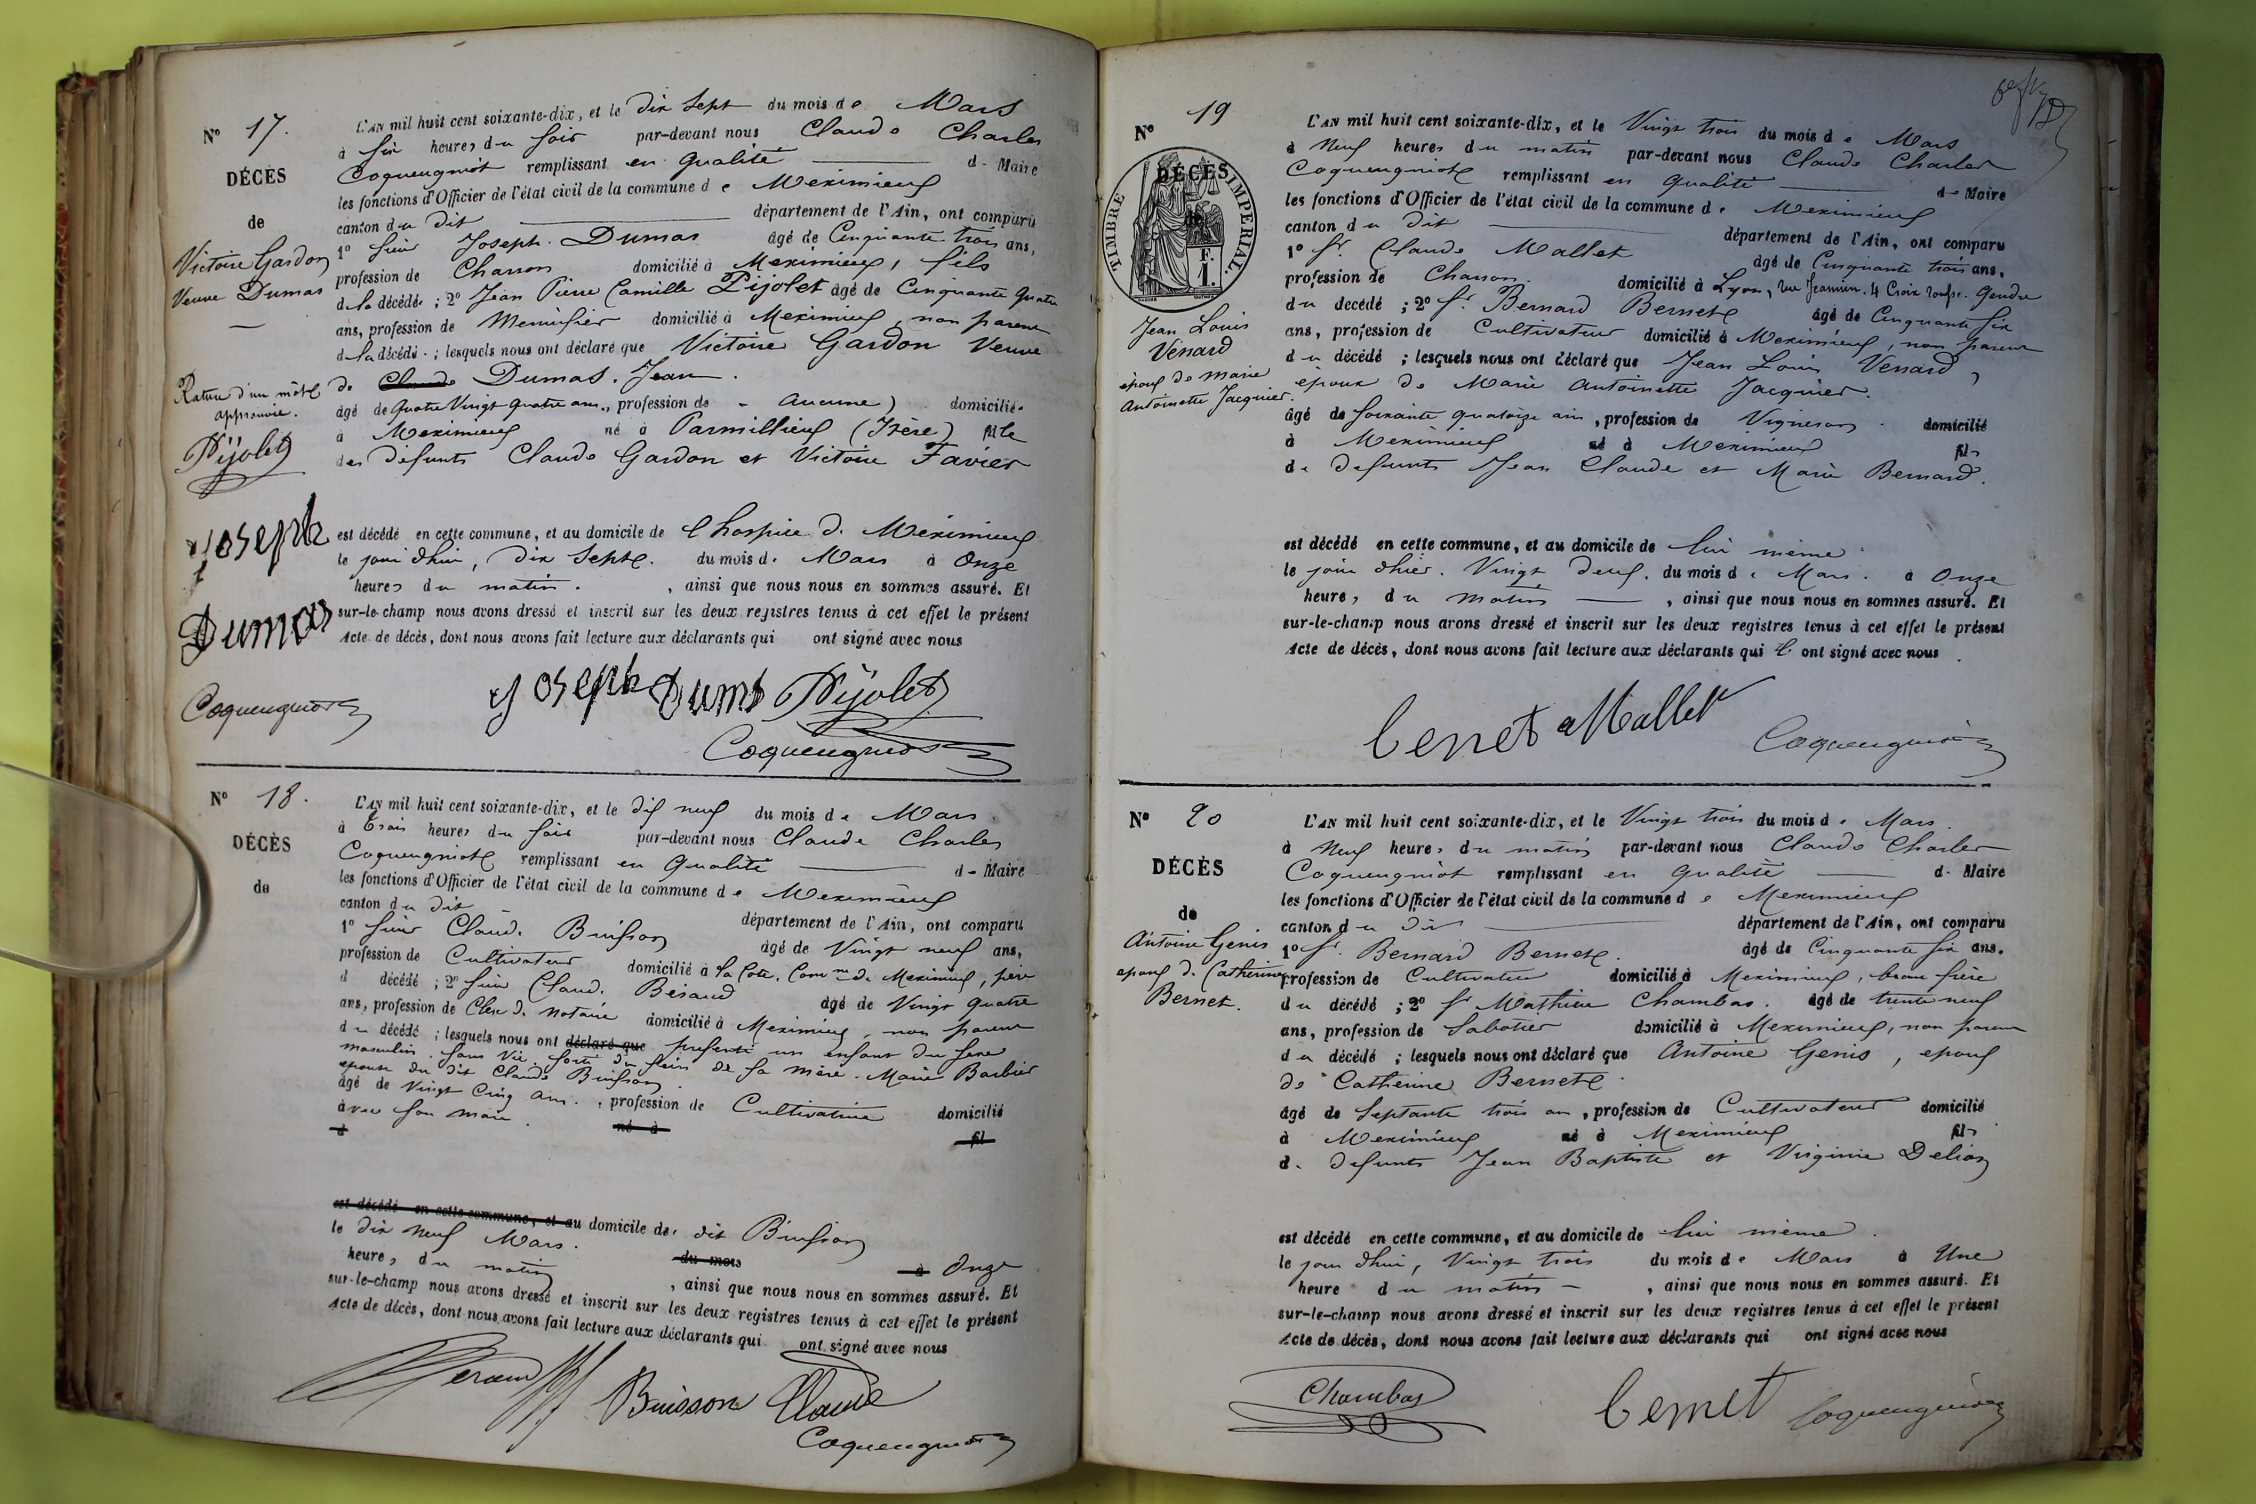 N° 17.
DÉCÈS
de
Victoire Gardon
Veuve Dumas
Rature d'un mot
approuvée.
Pijolet
Joseph
Dumas
Coquengniot
L'AN mil huit cent soixante-dix, et le dix Sept du mois de Mars
à six heures du soir par-devant nous Claude Charles
Coquengniot remplissant en qualité de Maire
les fonctions d'Officier de l'état civil de la commune de Meximieux
canton du dit département de l'Ain, ont comparu
1° sieur Joseph Dumas âgé de Cinquante trois ans,
profession de Charron domicilié à Meximieux, fils
de la décédée ; 2° Jean Pierre Camille Pijolet âgé de Cinquante quatre
ans, profession de Menuisier domicilié à Meximieux, non parent
de la décédé ; lesquels nous ont déclaré que Victoire Gardon Veuve
de Claude Dumas. Jean.
âgé de Quatre Vingt quatre ans, profession de - aucune) domicilié
à Meximieux né à Parmillieux (Isère) fille
des défunts Claude Gardon et Victoire Favier
est décédé en cette commune, et au domicile de l'hospice de Meximieux
le jour d'hui, dix Sept. du mois de Mars à Onze
heures du matin. , ainsi que nous nous en sommes assuré. Et
sur-le-champ nous avons dressé et inscrit sur les deux registres tenus à cet effet le présent
Acte de décès, dont nous avons fait lecture aux déclarants qui ont signé avec nous
Joseph Dumas Pijolet
Coquengniot
N° 18.
DÉCÈS
de
L'AN mil huit cent soixante-dix, et le dix neuf du mois de Mars.
à trois heures du soir par-devant nous Claude Charles
Coquengniot remplissant en qualité de Maire
les fonctions d'Officier de l'état civil de la commune de Meximieux
canton du dit département de l'Ain, ont comparu
1° sieur Claude Buisson âgé de Vingt neuf ans,
profession de Cultivateur domicilié à la Côte, Comne de Meximieux, père
d décédé ; 2° sieur Claude Béraud âgé de Vingt quatre
ans, profession de Clerc de notaire domicilié à Meximieux, non parent
du décédé ; lesquels nous ont déclaré que présenté un enfant du sexe
masculin, sans vie, sorti du sein de sa mère. Marie Barbier
épouse du dit Claude Buisson
âgé de Vingt Cinq ans. , profession de Cultivatrice domicilié
avec son mari.
à né à fil
est décédé en cette commune, et au domicile de dit Buisson
le dix neuf Mars. du mois à Onze
heures du matin , ainsi que nous nous en sommes assuré. Et
sur-le-champ nous avons dressé et inscrit sur les deux registres tenus à cet effet le présent
Acte de décès, dont nous avons fait lecture aux déclarants qui ont signé avec nous
Beraud Buisson Claude
Coquengniot
N° 19
TIMBRE IMPÉRIAL
DÉCÈS
de
1 F.
Jean Louis
Vénard
époux de Marie
Antoinette Jacquier.
L'AN mil huit cent soixante-dix, et le Vingt trois du mois de Mars
à Neuf heures du matin par-devant nous Claude Charles
Coquengniot remplissant en qualité de Maire
les fonctions d'Officier de l'état civil de la commune de Meximieux
canton du dit département de l'Ain, ont comparu
1° Sr. Claude Mallet âgé de Cinquante trois ans,
profession de Charron. domicilié à Lyon, rue Jeannin. 4 Croix rousse. Gendre
du décédé ; 2° Sr. Bernard Bernet âgé de Cinquante six
ans, profession de Cultivateur domicilié à Meximieux, non parent
du décédé ; lesquels nous ont déclaré que Jean Louis Vénard,
époux de Marie Antoinette Jacquier.
âgé de soixante quatorze ans, profession de Vigneron. domicilié
à Meximieux né à Meximieux fils
de défunts Jean Claude et Marie Bernard.
est décédé en cette commune, et au domicile de lui même
le jour d'hier. Vingt deux. du mois de Mars. à Onze
heures du matin , ainsi que nous nous en sommes assuré. Et
sur-le-champ nous avons dressé et inscrit sur les deux registres tenus à cet effet le présent
Acte de décès, dont nous avons fait lecture aux déclarants qui ont signé avec nous
bernet Mallet Coquengniot
N° 20
DÉCÈS
de
Antoine Génis
époux de Catherine
Bernet.
L'AN mil huit cent soixante-dix, et le Vingt trois du mois de Mars.
à Neuf heures du matin par-devant nous Claude Charles
Coquengniot remplissant en qualité de Maire
les fonctions d'Officier de l'état civil de la commune de Meximieux
canton du dit département de l'Ain, ont comparu
1° Sr. Bernard Bernet. âgé de Cinquante six ans.
profession de Cultivateur domicilié à Meximieux, beau frère
du décédé ; 2° Sr Mathieu Chambas. âgé de trente neuf
ans, profession de Sabotier domicilié à Meximieux, non parent
du décédé ; lesquels nous ont déclaré que Antoine Genis, époux
de Catherine Bernet.
âgé de Septante trois ans, profession de Cultivateur domicilié
à Meximieux né à Meximieux fils
de défunts Jean Baptiste et Virginie Delion
est décédé en cette commune, et au domicile de lui même.
le jour d'hui, Vingt trois du mois de Mars à Une
heure du matin , ainsi que nous nous en sommes assuré. Et
sur-le-champ nous avons dressé et inscrit sur les deux registres tenus à cet effet le présent
Acte de décès, dont nous avons fait lecture aux déclarants qui ont signé avec nous
Chambas bernet Coquengniot